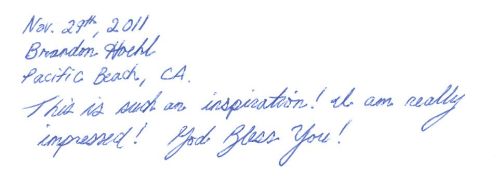 Nov. 27th, 2011
Brandon Hoehl
Pacific Beach, CA.
This is such an inspiration! I am really
impressed! God Bless You!